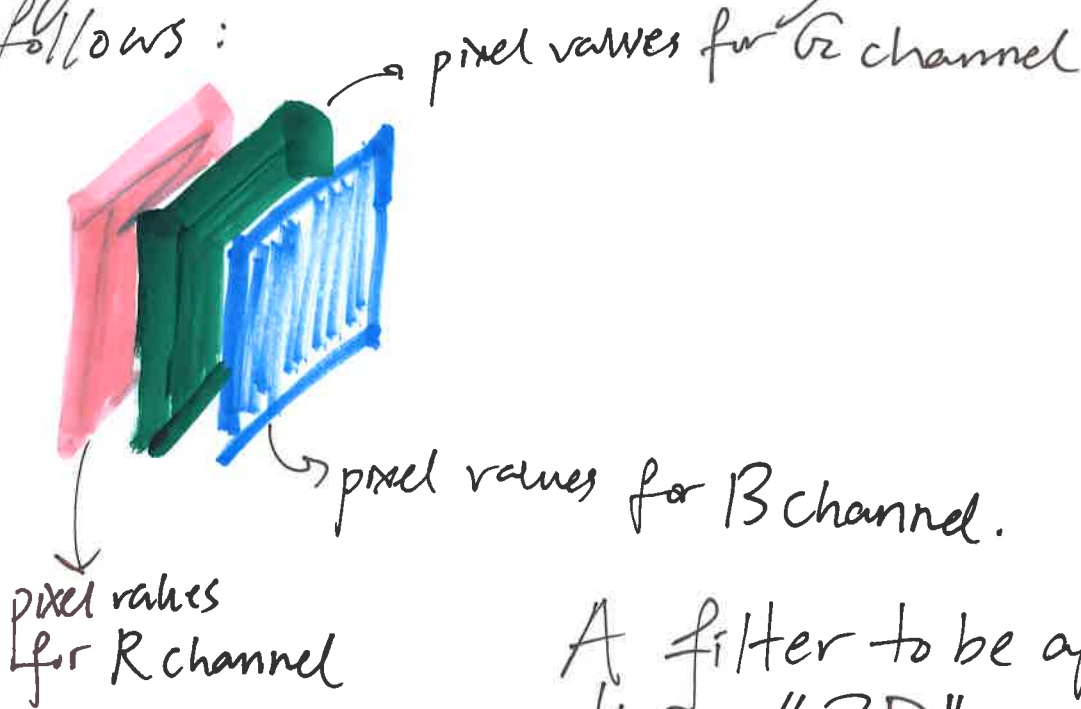 follows :
pixel values for G channel
pixel values for B channel.
pixel values
for R channel
A filter to be
"3D"